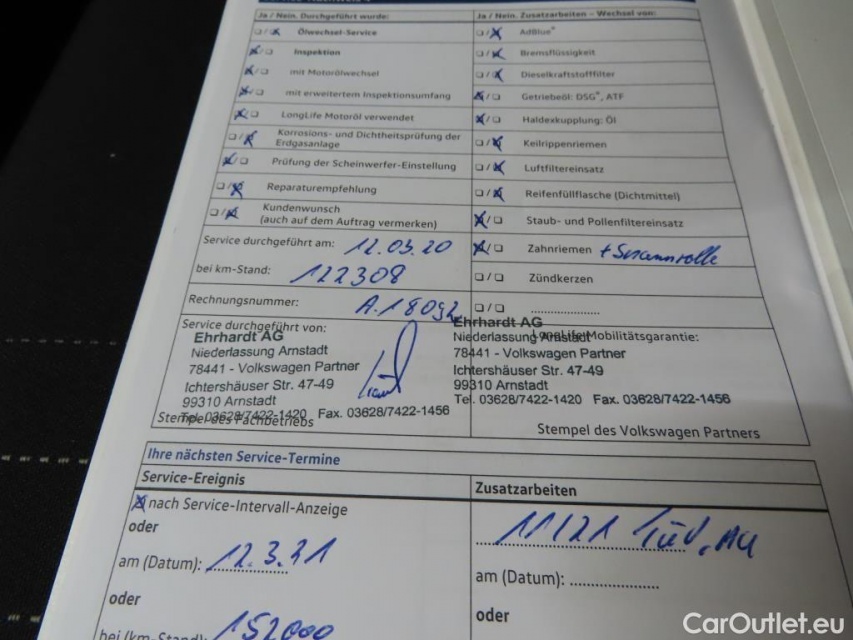 Ja / Nein. Durchgeführt wurde:
Ölwechsel-Service
Inspektion
mit Motorölwechsel
mit erweitertem Inspektionsumfang
LongLife Motoröl verwendet
Korrosions- und Dichtheitsprüfung der
Erdgasanlage
Prüfung der Scheinwerfer-Einstellung
Reparaturempfehlung
Kundenwunsch
(auch auf dem Auftrag vermerken)
Service durchgeführt am: 12.03.20
bei km-Stand: 122308
Rechnungsnummer:
Service durchgeführt von:
Ehrhardt AG
Niederlassung Arnstadt
78441 - Volkswagen Partner
Ichtershäuser Str. 47-49
99310 Arnstadt
Tel. 03628/7422-1420 Fax. 03628/7422-1456
Stempel des Fachbetriebs
Ja / Nein. Zusatzarbeiten – Wechsel von:
AdBlue®
Bremsflüssigkeit
Dieselkraftstofffilter
Getriebeöl: DSG®, ATF
Haldexkupplung: Öl
Keilrippenriemen
Luftfiltereinsatz
Reifenfüllflasche (Dichtmittel)
Staub- und Pollenfiltereinsatz
Zahnriemen + Spannrolle
Zündkerzen
LongLife Mobilitätsgarantie:
Ehrhardt AG
Niederlassung Arnstadt
78441 - Volkswagen Partner
Ichtershäuser Str. 47-49
99310 Arnstadt
Tel. 03628/7422-1420 Fax. 03628/7422-1456
Stempel des Volkswagen Partners
Ihre nächsten Service-Termine
Service-Ereignis
nach Service-Intervall-Anzeige
oder
am (Datum): 12.3.21
oder
bei (km-Stand): 152000
Zusatzarbeiten
11/21 TüV, AU
am (Datum):
oder
CarOutlet.eu